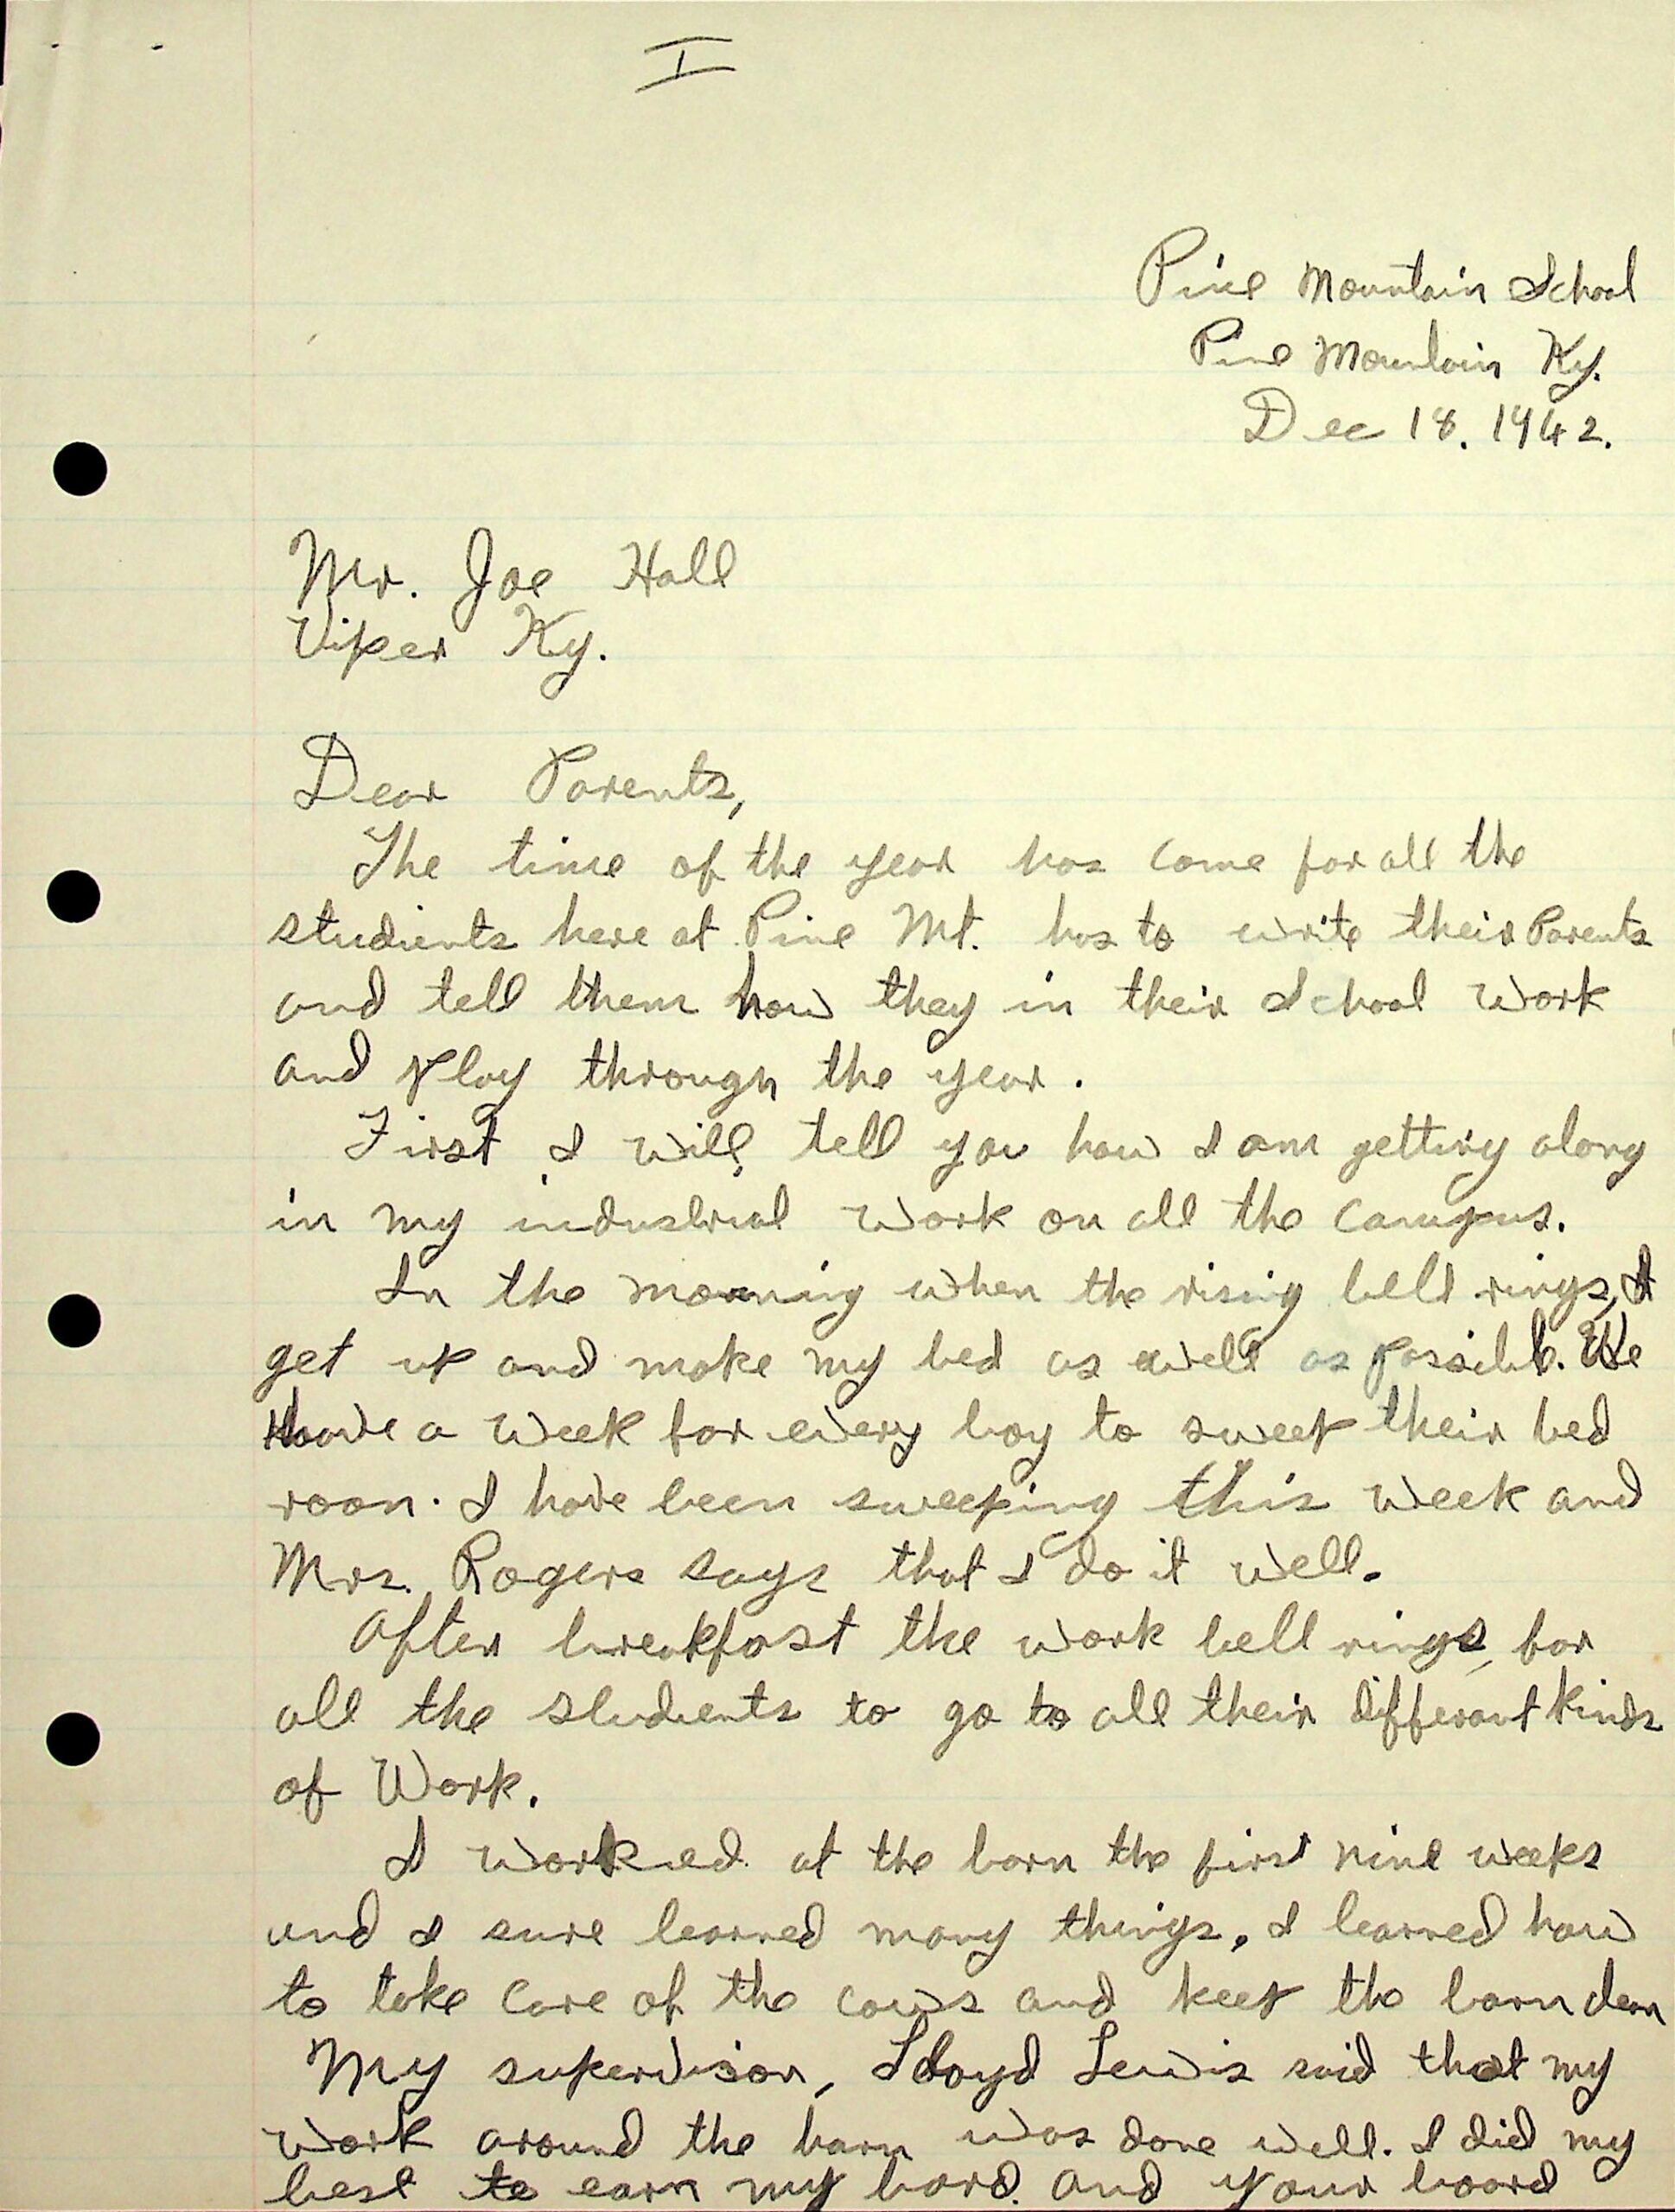 I
Pine Mountain School
Pine Mountain Ky.
Dec 18. 1942.
Mr. Joe Hall
Viper Ky.
Dear Parents,
The time of the year has come for all the
studients here at Pine Mt. has to write their Parents
and tell them how they in their School work
and play through the year.
First I will tell you how I am getting along
in my industrial work on all the campus.
In the morning when the rising bell rings, I
get up and make my bed as well as possible. We
have a week for every boy to sweep their bed
roon. I have been sweeping this week and
Mrs. Rogers says that I do it well.
After breakfast the work bell rings, for
all the studients to go to all their differant kinds
of Work.
I worked at the barn the first nine weeks
and I sure learned many things, I learned how
to take care of the cows and keep the barn clean
My supervisor, Lloyd Lewis said that my
work around the barn was done well. I did my
best to earn my bord. and your board